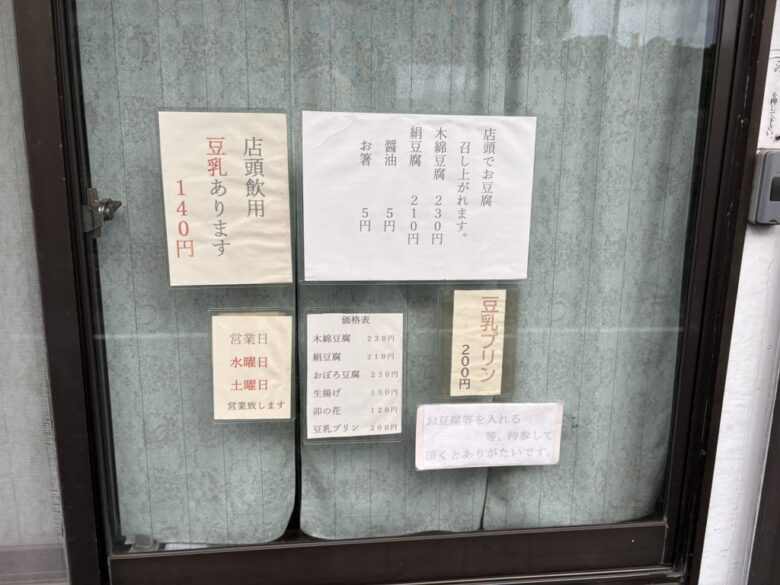 店頭でお豆腐
召し上がれます。
木綿豆腐 230円
絹豆腐 210円
醤油 5円
お箸 5円
店頭飲用
豆乳あります
140円
営業日
水曜日
土曜日
営業致します
価格表
木綿豆腐 230円
絹豆腐 210円
おぼろ豆腐 230円
生揚げ 150円
卯の花 120円
豆乳プリン 200円
豆乳プリン
200円
お豆腐等を入れる
等、持参して
頂くとありがたいです。
を押して下さい。